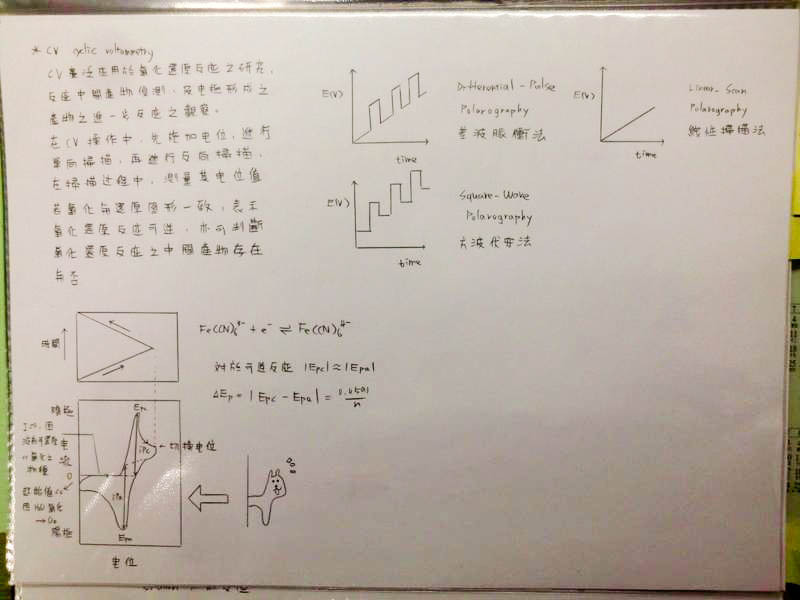 * CV cyclic voltammetry
CV廣泛應用於氧化還原反應之研究,
反應中間產物偵測,及电極形成之
產物之進一步反應之觀察。
在CV操作中,先施加电位,進行
單向掃描,再進行反向掃描,
在掃描过程中,測量其电位值
若氧化与還原圖形一致,表示
氧化還原反应可逆,亦可判斷
氧化還原反应之中間產物存在
与否
E(V)
time
Differential-Pulse
Polarography
差波脈衝法
E(V)
time
Linear-Scan
Polarography
線性掃描法
E(V)
time
Square-Wave
Polarography
方波伏安法
時間
Fe(CN)₆³⁻ + e⁻ ⇌ Fe(CN)₆⁴⁻
對於可逆反应 |Epc| ≈ |Epa|
ΔEp = |Epc - Epa| = 0.0591/n
陰極
电
流
0
陽極
Epc
ipc
ipa
Epa
← 切換电位
起始值
电位